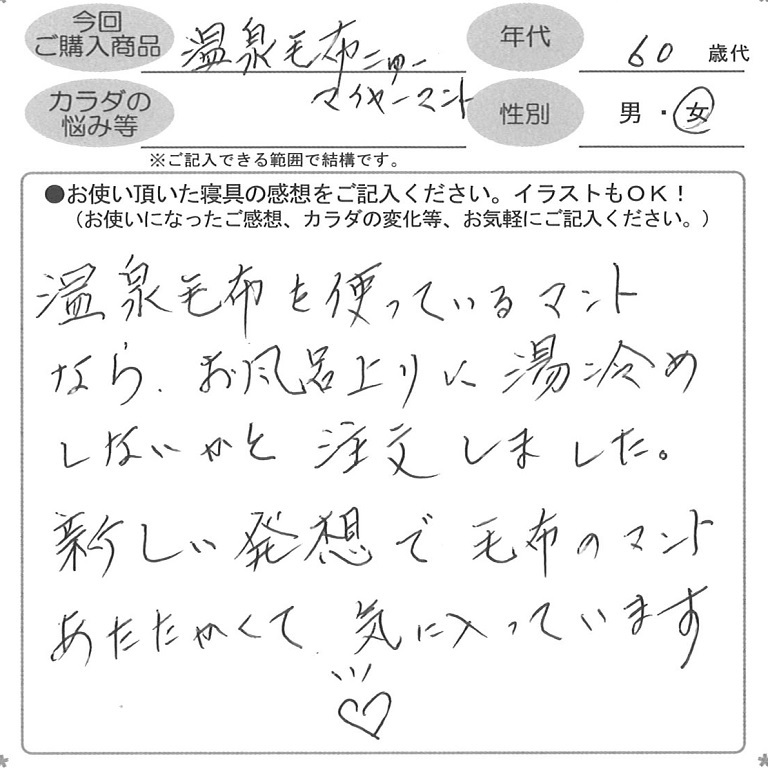 今回
ご購入商品
温泉毛布ニュー
マイヤーマント
年代
60 歳代
カラダの
悩み等
性別
男・女
※ご記入できる範囲で結構です。
●お使い頂いた寝具の感想をご記入ください。イラストもOK！
（お使いになったご感想、カラダの変化等、お気軽にご記入ください。）
温泉毛布を使っているマント
なら、お風呂上りに湯冷め
しないかと注文しました。
新しい発想で毛布のマント
あたたかくて、気に入っています
♡